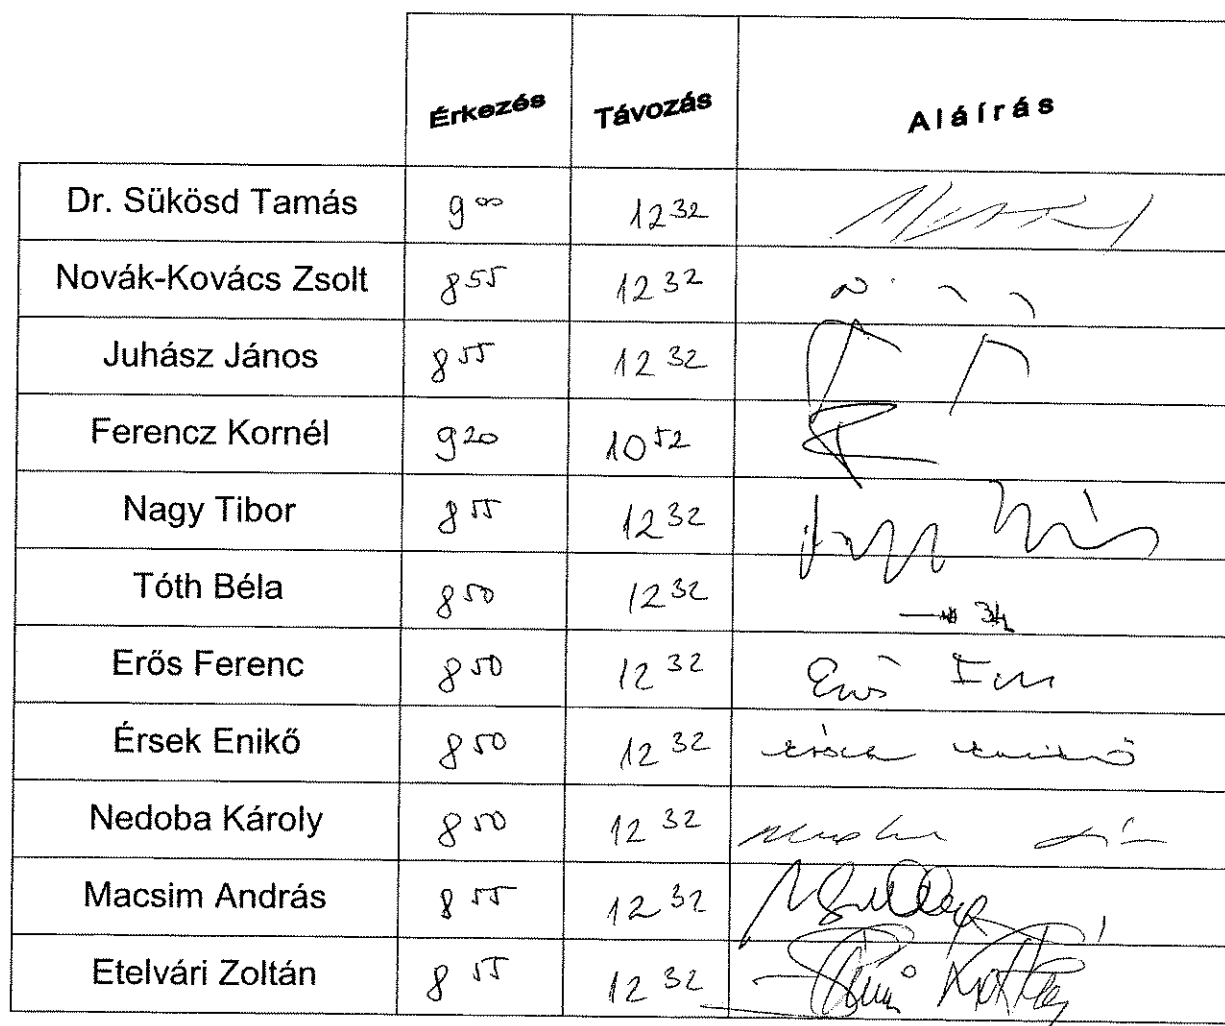 Érkezés Távozás Aláírás
Dr. Sükösd Tamás 9 00 12 32
Novák-Kovács Zsolt 8 55 12 32
Juhász János 8 55 12 32
Ferencz Kornél 9 20 10 52
Nagy Tibor 8 55 12 32
Tóth Béla 8 50 12 32
Erős Ferenc 8 50 12 32 Erős
Érsek Enikő 8 50 12 32 Érsek Enikő
Nedoba Károly 8 50 12 32
Macsim András 8 55 12 32
Etelvári Zoltán 8 55 12 32